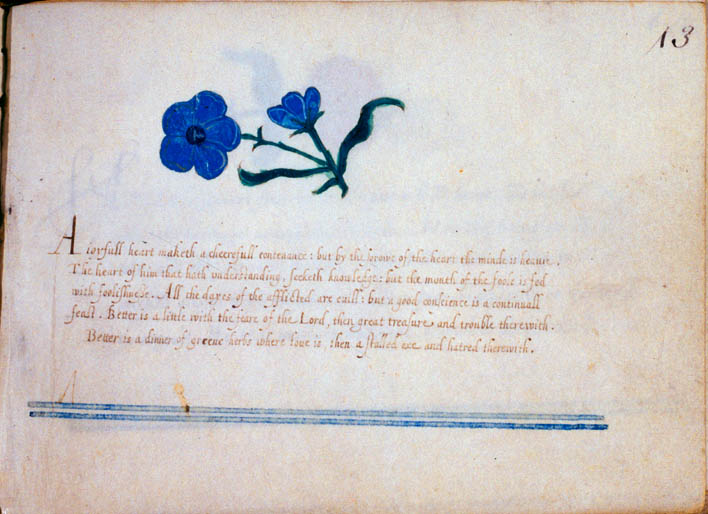 13
A ioyfull heart maketh a cheerefull contenance: but by the sorowe of the heart the minde is heauie.
The heart of him that hath vnderstanding, seeketh knowledge: but the mouth of the foole is fed
with foolishnesse. All the dayes of the afflicted are euill: but a good conscience is a continuall
feast. Better is a little with the feare of the Lord, then great treasure and trouble therewith.
Better is a dinner of greene herbs where loue is, then a stalled oxe and hatred therewith.